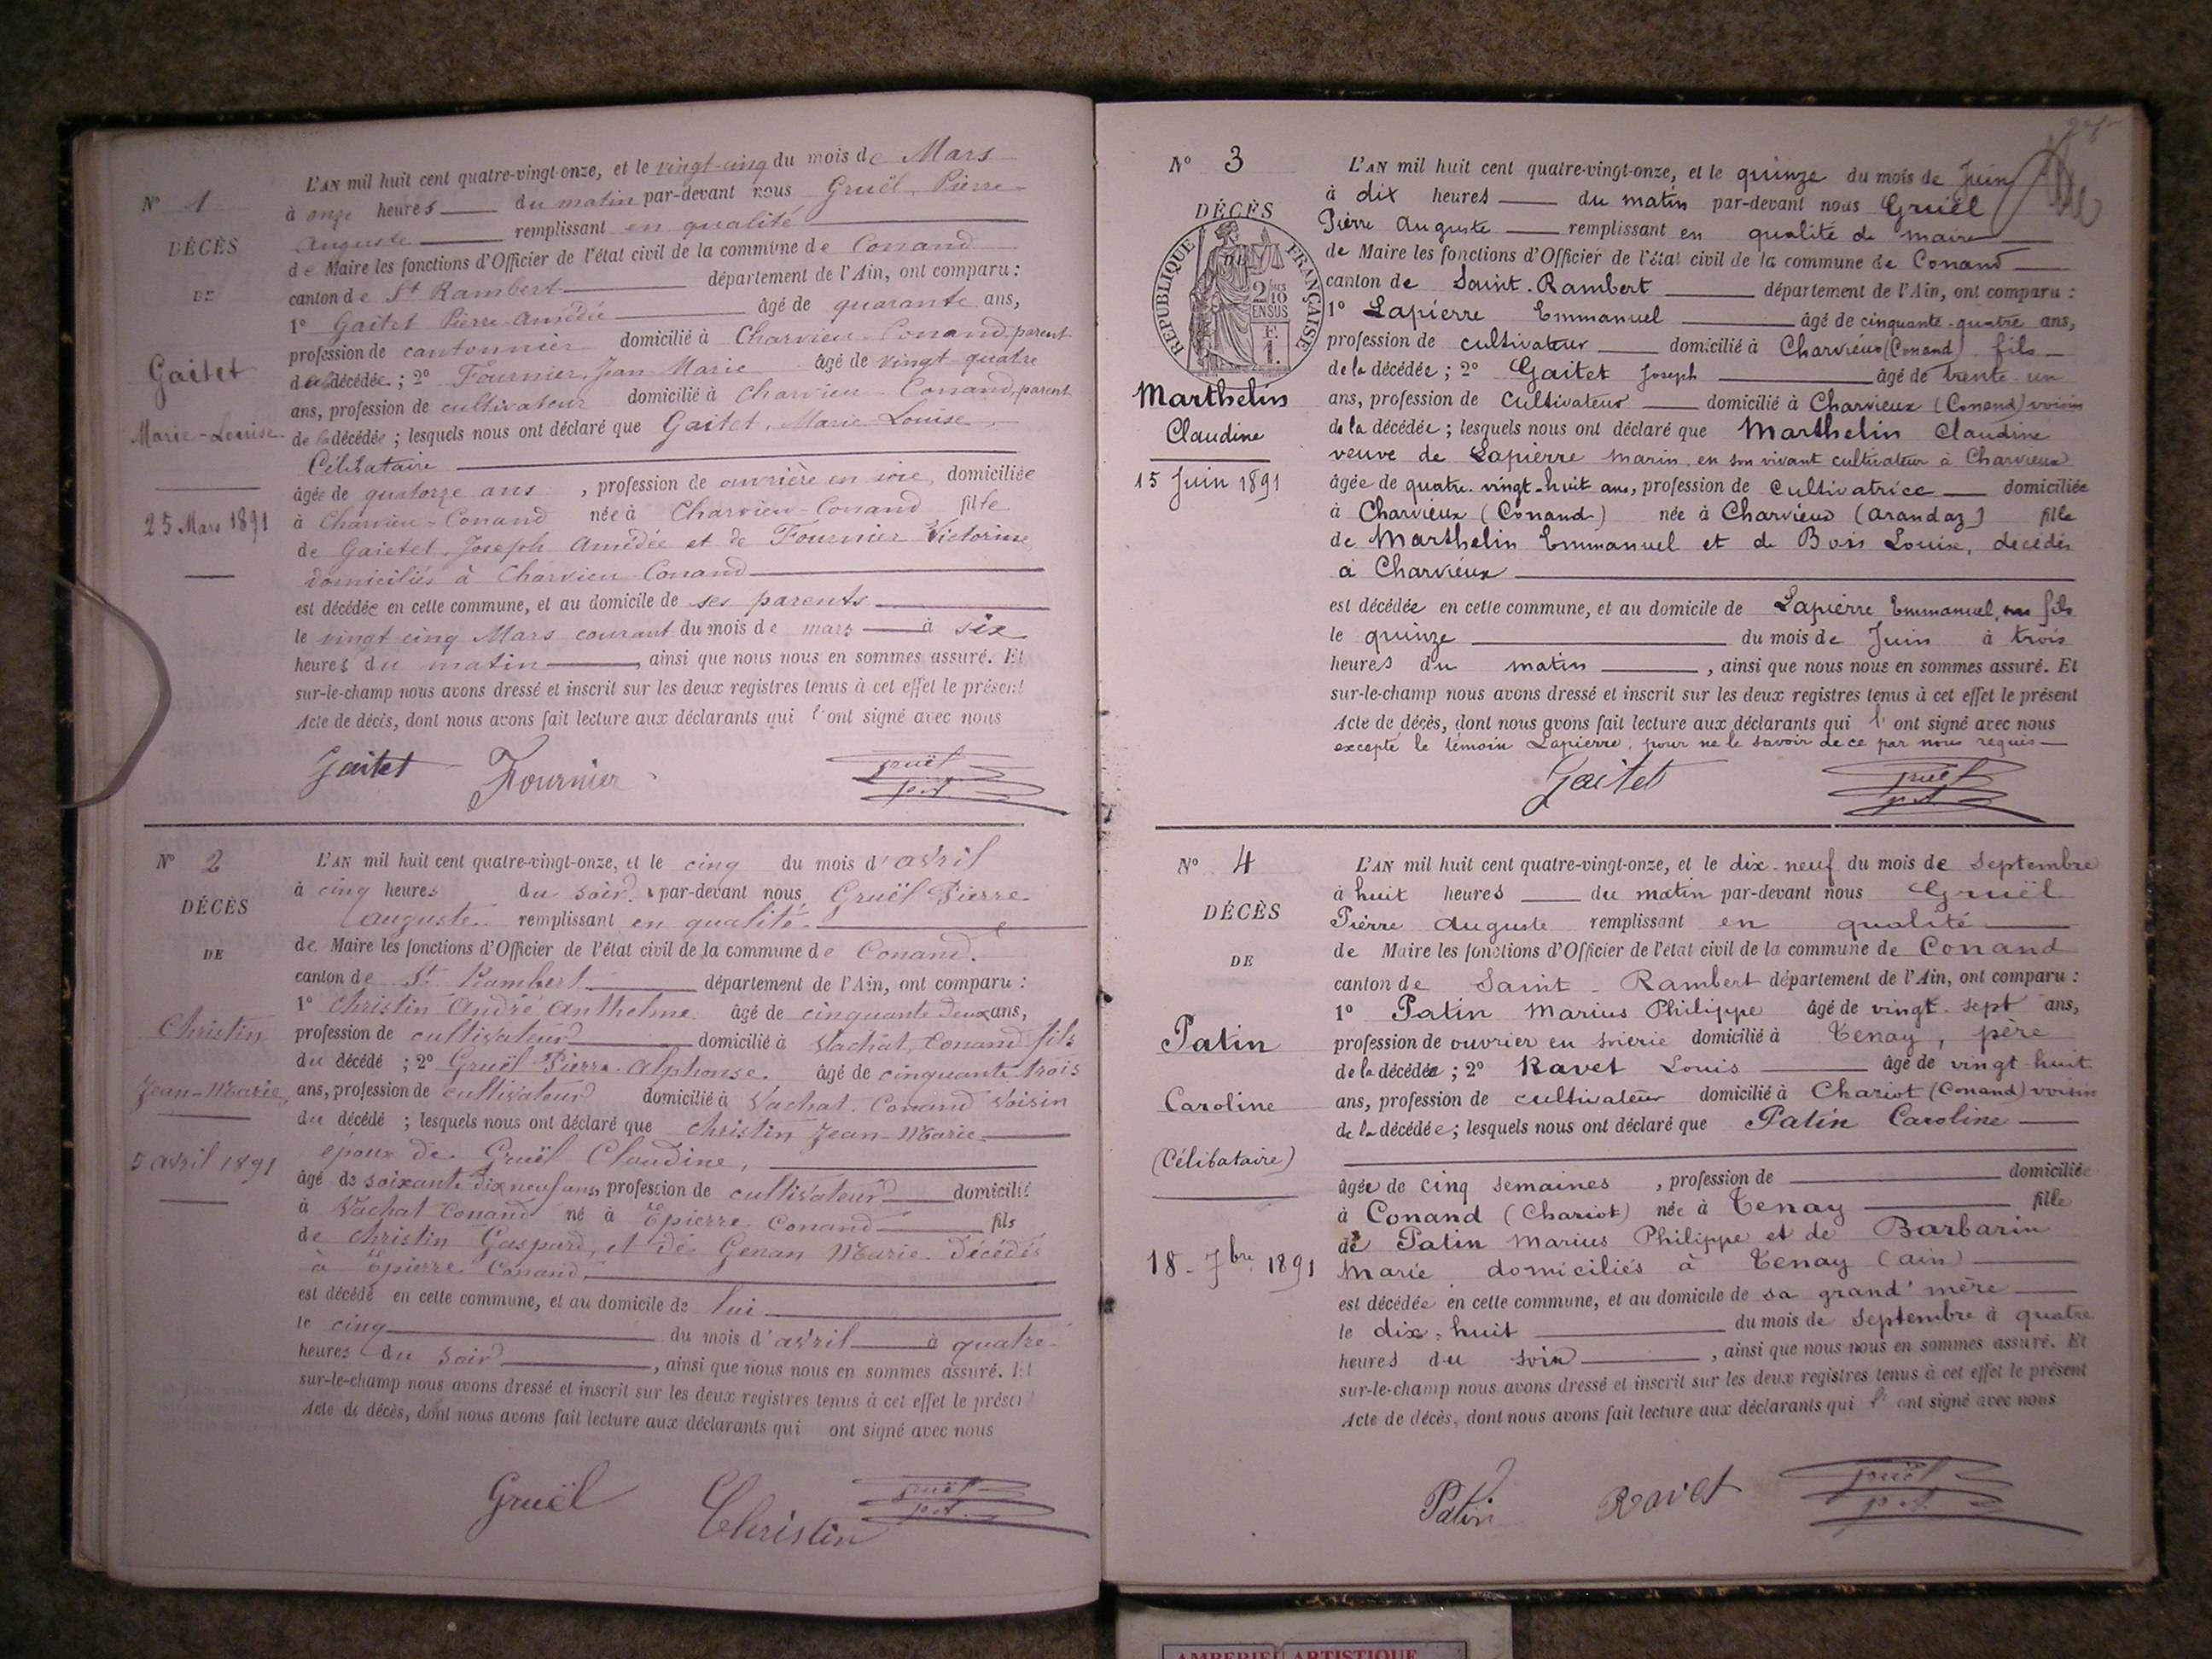 N° 1
DÉCÈS
DE
Gaitet
Marie-Louise
25 Mars 1891
L'AN mil huit cent quatre-vingt-onze, et le vingt-cinq du mois de Mars
à onze heures du matin par-devant nous Gruël Pierre
Auguste remplissant en qualité
de Maire les fonctions d'Officier de l'état civil de la commune de Conand
canton de St Rambert département de l'Ain, ont comparu :
1° Gaitet Pierre Amédée âgé de quarante ans,
profession de cantonnier domicilié à Charvieu-Conand, parent
de la décédée ; 2° Fournier, Jean Marie âgé de vingt quatre
ans, profession de cultivateur domicilié à Charvieu-Conand, parent
de la décédée ; lesquels nous ont déclaré que Gaitet, Marie-Louise
Célibataire
âgée de quatorze ans , profession de ouvrière en soie, domiciliée
à Charvieu-Conand née à Charvieu-Conand fille
de Gaietet, Joseph Amédée et de Fournier Victorine
domiciliés à Charvieu-Conand
est décédée en cette commune, et au domicile de ses parents
le vingt cinq Mars courant du mois de mars à six
heures du matin , ainsi que nous nous en sommes assuré. Et
sur-le-champ nous avons dressé et inscrit sur les deux registres tenus à cet effet le présent
Acte de décès, dont nous avons fait lecture aux déclarants qui l'ont signé avec nous
Gaitet Fournier Gruël
p.A.
N° 2
DÉCÈS
DE
Christin
Jean-Marie
5 avril 1891
L'AN mil huit cent quatre-vingt-onze, et le cinq du mois d'avril
à cinq heures du soir par-devant nous Gruël Pierre
Auguste remplissant en qualité
de Maire les fonctions d'Officier de l'état civil de la commune de Conand.
canton de St Rambert département de l'Ain, ont comparu :
1° Christin André Anthelme âgé de cinquante deux ans,
profession de cultivateur domicilié à Vachat, Conand fils
du décédé ; 2° Gruël Pierre-Alphonse. âgé de cinquante trois
ans, profession de cultivateur domicilié à Vachat. Conand voisin
du décédé ; lesquels nous ont déclaré que Christin Jean-Marie
époux de Gruël Claudine,
âgé de soixante dix neuf ans, profession de cultivateur domicilié
à Vachat Conand né à Epierre Conand fils
de Christin Gaspard, et de Genan Marie décédés
à Epierre Conand,
est décédé en cette commune, et au domicile de lui
le cinq du mois d'avril à quatre
heures du soir , ainsi que nous nous en sommes assuré. Et
sur-le-champ nous avons dressé et inscrit sur les deux registres tenus à cet effet le présent
Acte de décès, dont nous avons fait lecture aux déclarants qui ont signé avec nous
Gruël Christin Gruël
p.A.
N° 3
DÉCÈS
DE
RÉPUBLIQUE FRANÇAISE
2/10 EN SUS
F.
1.
Marthelin
Claudine
15 Juin 1891
L'AN mil huit cent quatre-vingt-onze, et le quinze du mois de Juin
à dix heures du matin par-devant nous Gruël
Pierre Auguste remplissant en qualité de maire
de Maire les fonctions d'Officier de l'état civil de la commune de Conand
canton de Saint-Rambert département de l'Ain, ont comparu :
1° Lapierre Emmanuel âgé de cinquante-quatre ans,
profession de cultivateur domicilié à Charvieux (Conand) fils
de la décédée ; 2° Gaitet Joseph âgé de trente-un
ans, profession de Cultivateur domicilié à Charvieux (Conand) voisin
de la décédée ; lesquels nous ont déclaré que Marthelin Claudine
veuve de Lapierre Marin en son vivant cultivateur à Charvieux
âgée de quatre-vingt-huit ans, profession de Cultivatrice domiciliée
à Charvieux (Conand) née à Charvieux (Arandaz) fille
de Marthelin Emmanuel et de Bois Louise, décédés
à Charvieux
est décédée en cette commune, et au domicile de Lapierre Emmanuel, son fils
le quinze du mois de Juin à trois
heures du matin , ainsi que nous nous en sommes assuré. Et
sur-le-champ nous avons dressé et inscrit sur les deux registres tenus à cet effet le présent
Acte de décès, dont nous avons fait lecture aux déclarants qui l'ont signé avec nous
excepté le témoin Lapierre, pour ne le savoir de ce par nous requis
Gaitet Gruël
p.A.
N° 4
DÉCÈS
DE
Patin
Caroline
(Célibataire)
18-7bre 1891
L'AN mil huit cent quatre-vingt-onze, et le dix-neuf du mois de Septembre
à huit heures du matin par-devant nous Gruël
Pierre Auguste remplissant en qualité
de Maire les fonctions d'Officier de l'état civil de la commune de Conand
canton de Saint-Rambert département de l'Ain, ont comparu :
1° Patin Marius Philippe âgé de vingt-sept ans,
profession de ouvrier en soierie domicilié à Tenay, père
de la décédée ; 2° Ravet Louis âgé de vingt-huit
ans, profession de cultivateur domicilié à Chariot (Conand) voisin
de la décédée ; lesquels nous ont déclaré que Patin Caroline
âgée de cinq semaines , profession de domiciliée
à Conand (Chariot) née à Tenay fille
de Patin Marius Philippe et de Barbarin
Marie domiciliés à Tenay (ain)
est décédée en cette commune, et au domicile de sa grand'mère
le dix-huit du mois de Septembre à quatre
heures du soir , ainsi que nous nous en sommes assuré. Et
sur-le-champ nous avons dressé et inscrit sur les deux registres tenus à cet effet le présent
Acte de décès, dont nous avons fait lecture aux déclarants qui l'ont signé avec nous
Patin Ravet Gruël
p.A.
AMBERIEU ARTISTIQUE